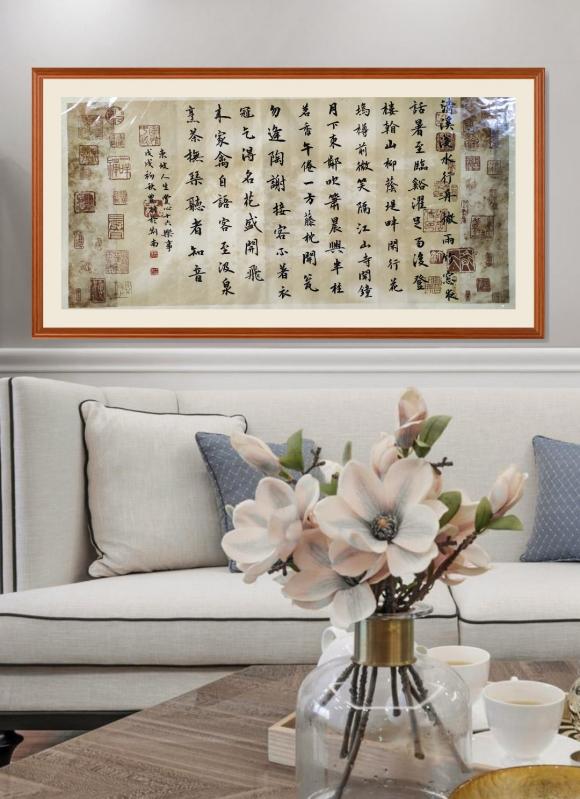 清溪淺水行舟微雨竹窓夜
話暑至臨谿濯足雨後登
樓看山柳蔭堤畔閑行花
塢樽前微笑隔江山寺聞鐘
月下東鄰吹簫晨興半柱
茗香午倦一方藤枕開瓮
勿逢陶謝接客不著衣
冠乞得名花盛開飛
來家禽自語客至汲泉
烹茶撫琹聽者知音
東坡人生賞心十六樂事
戊戌初秋